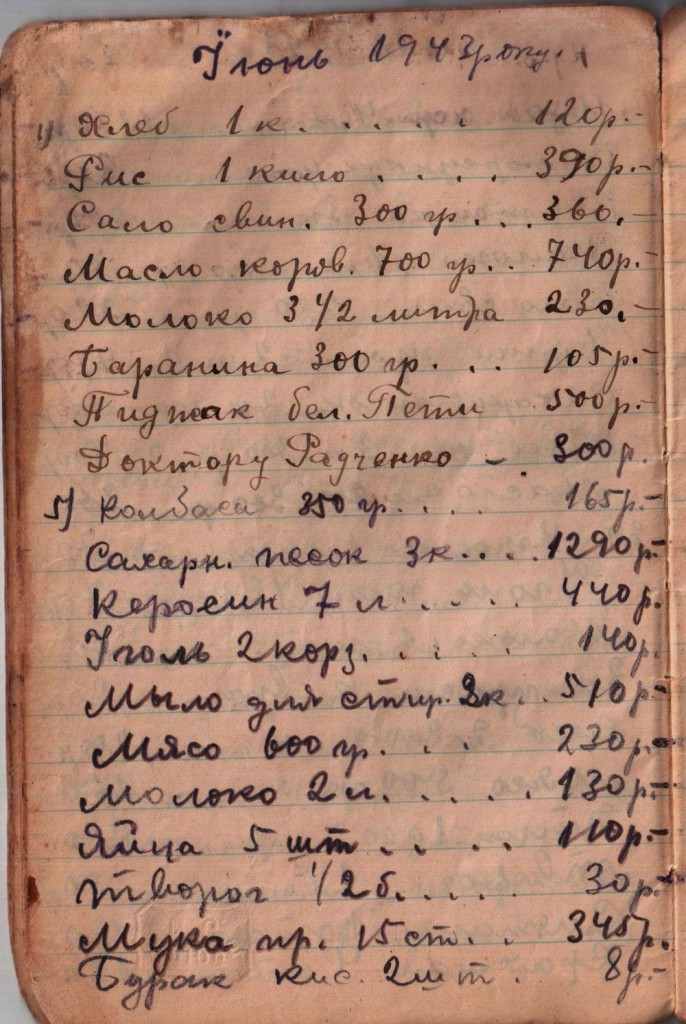 Їюнь 1943 року.
1) Хлеб 1 к. . . . . . 120р.-
Рис 1 кило . . . . 390р.-
Сало свин. 300 гр. . . 360.-
Масло коров. 700 гр. . 740р.-
Молоко 3 1/2 литра 230.-
Баранина 300 гр. . . 105р.-
Пиджак бел. Пети 500р.-
Доктору Радченко - 300р.
5) Колбаса 350 гр. . . . 165р.-
Сахарн. песок 3к. . . 1290р.-
Керосин 7 л. . . . . 440р.
Уголь 2 корз. . . . . 140р.
Мыло для стир. 2к. . 510р-
Мясо 600 гр. . . . 230р.-
Молоко 2 л. . . . . 130р.-
Яйца 5 шт . . . . 110р.-
Творог 1/2 б. . . . . 30р.-
Мука пр. 15 ст. . . 345р.
Бурак кис. 2 шт. . 8р.-